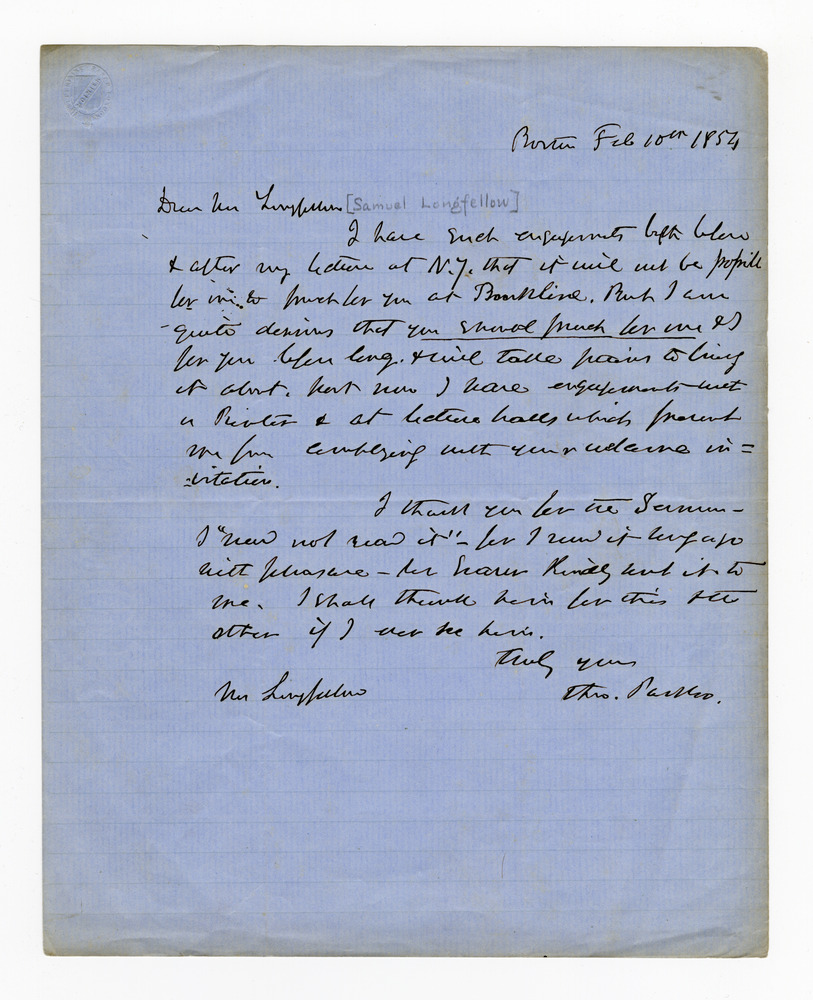 Boston Feb 10th 1854
Dear Mr Longfellow [Samuel Longfellow]
I have such engagements both before
& after my lecture at N.Y. that it will not be possible
for me to preach for you at Brooklin. But I am
quite desirous that you should preach for me & I
for you before long. & will take pains to bring
it about. Just now I have engagements
& at lecture halls which prevent
me from complying with your welcome in=
=vitation.
I thank you for the Sermon –
I "had not read it" – for I read it long ago
with pleasure – kindly sent it to
me. I shall thank him for this & the
other if I ever see him.
Truly yours
Mr Longfellow Theo. Parker.